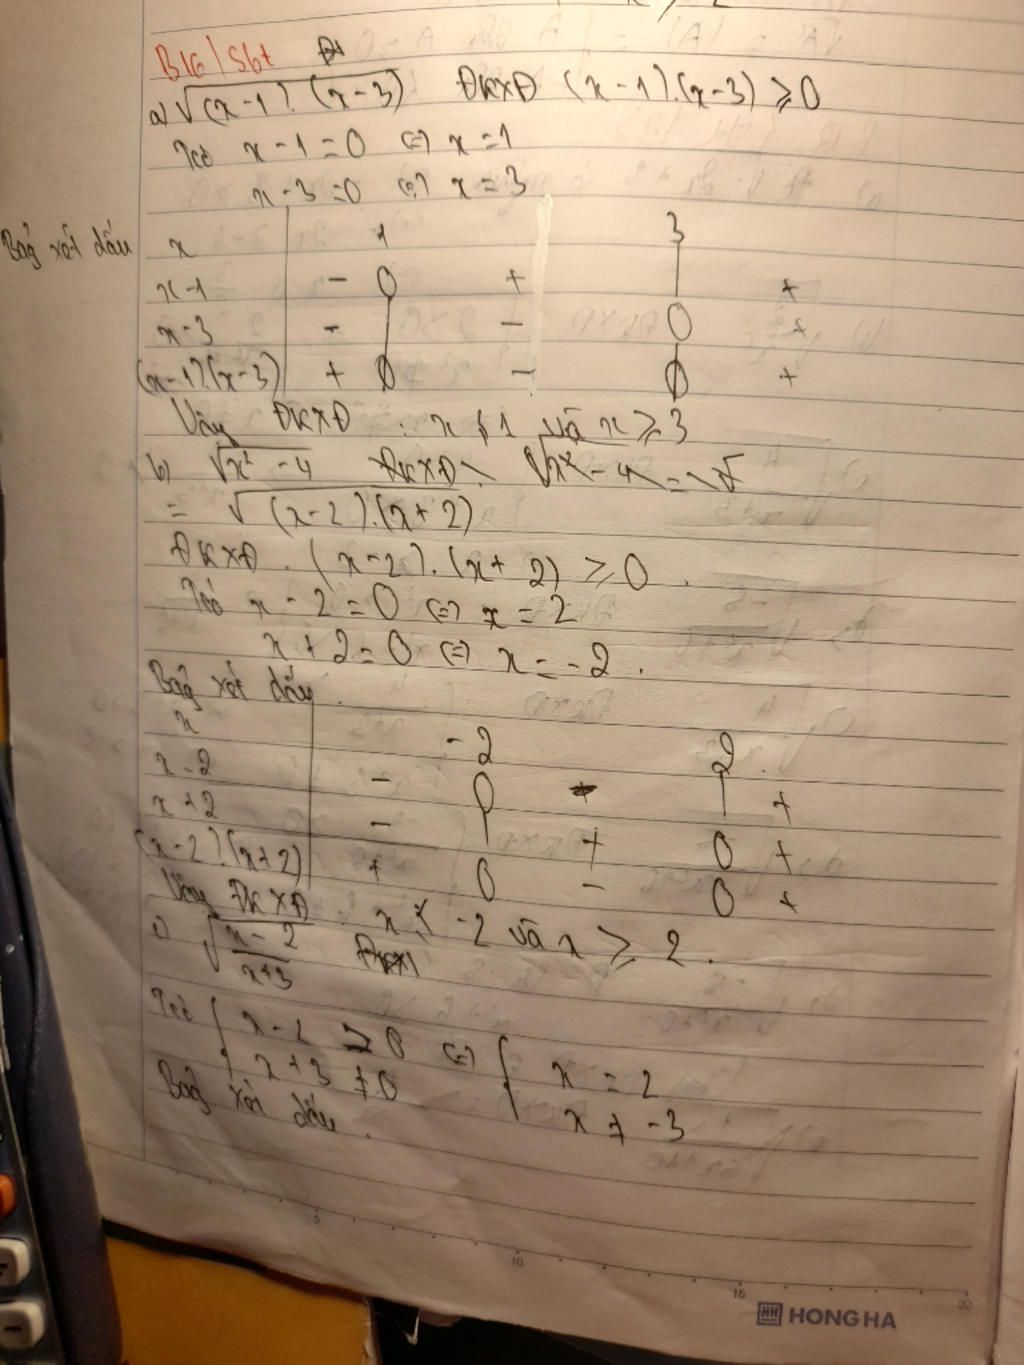 B16/Sbt
a) √(x-1).(x-3) ĐKXĐ (x-1).(x-3) ≥ 0
x-1=0 ⇔ x=1
x-3=0 ⇔ x=3
Bảg xét dấu x 1 3
x-1 - 0 + | +
x-3 - | - 0 +
(x-1).(x-3) + 0 - 0 +
Vậy ĐKXĐ : x ≤ 1 và x ≥ 3
b) √x² - 4
= √(x-2).(x+2)
ĐKXĐ. (x-2).(x+2) ≥ 0.
x-2=0 ⇔ x=2
x+2=0 ⇔ x=-2.
Bảg xét dấu.
x -2 2
x-2 - 0 | +
x+2 - + 0 +
(x-2).(x+2) + 0 - 0 +
Vậy ĐKXĐ x ≤ -2 và x ≥ 2.
c) √x-2/x+3
{ x-2 ≥ 0 ⇔ { x = 2
x+3 ≠ 0 x ≠ -3
Bảg xét dấu.
5 10 15 20
HH HONG HA